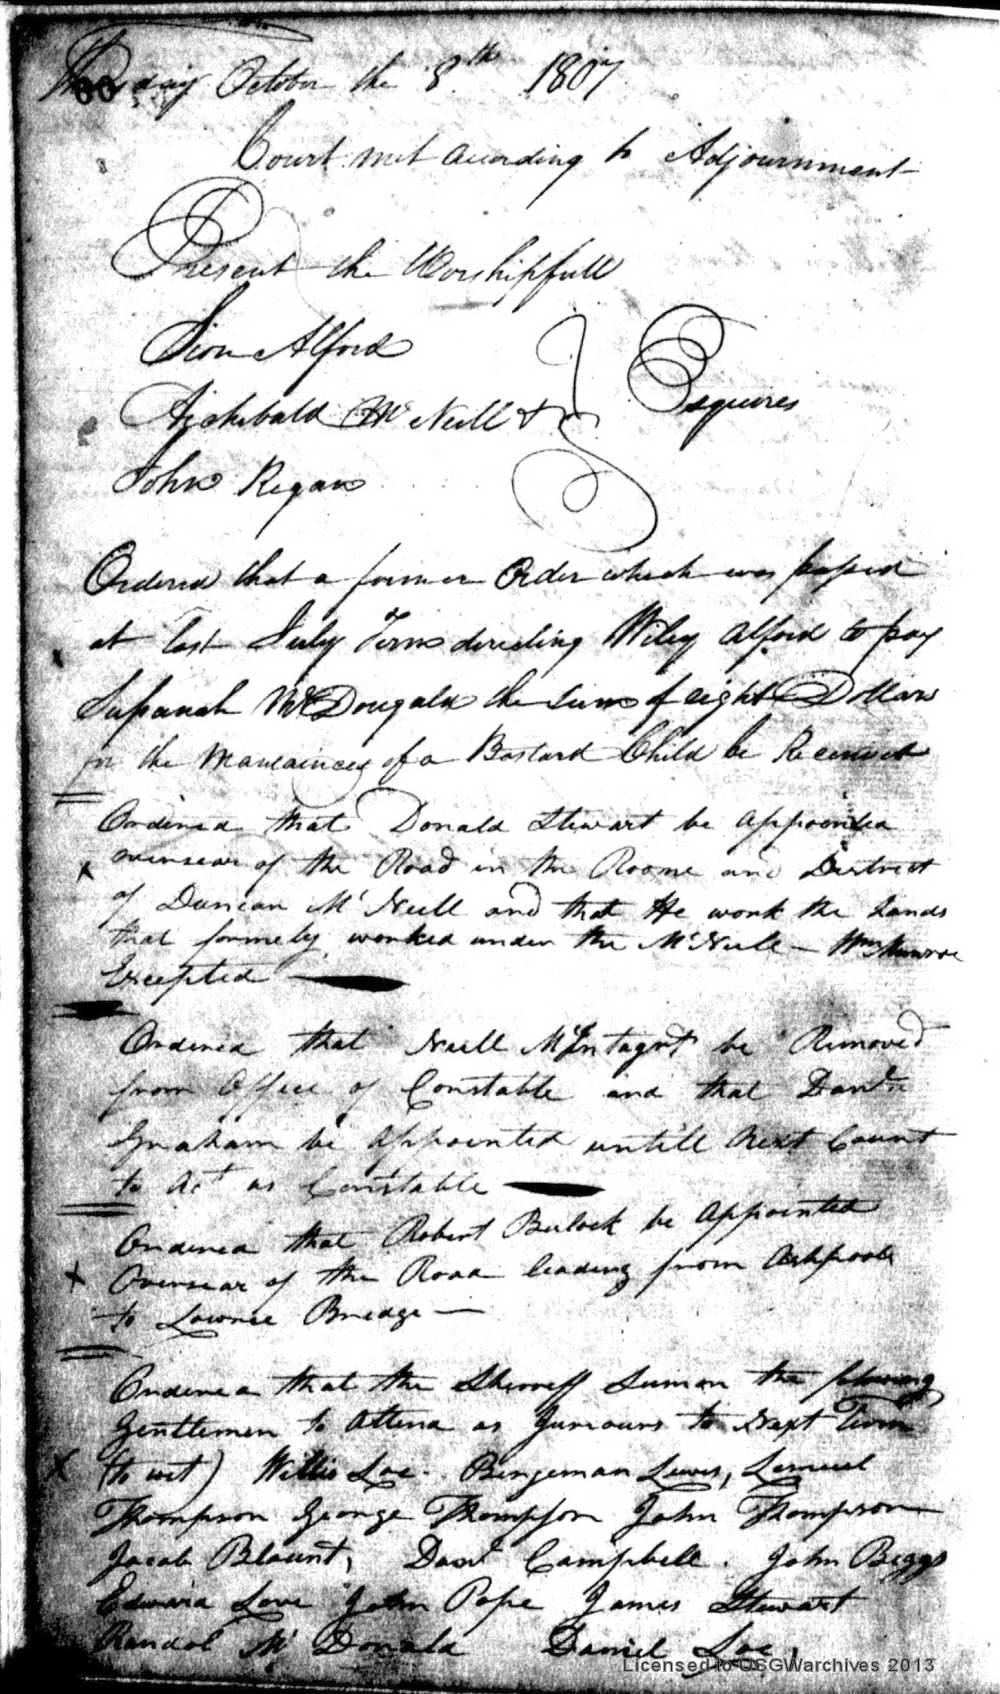 Thursday October the 8th 1807
Court met according to Adjournment
Present the Worshipfull
Sion Alford
Archibald McNeill & Esquires
John Regan
Ordered that a former Order which was passed
at last July Term directing Wiley Alford to pay
Susanah McDougald the sum of eight Dollars
for the of a Bastard Child be
Ordered that Donald Stewart be appointed
overseear of the Road in the Roome and District
of Duncan McNeill and that He work the hands
that formely worked under the McNeill — Wm Munroe
Excepted —
Ordered that Neill be Removed
from Office of Constable and that
Graham be Appointed untill Next Court
to Act as Constable —
Ordered that Robert Bulock be Appointed
Overseear of the Road leading from Ashpole
to Lowrie Bridge —
Ordered that the Sherreff Sumon the
Gentlemen to Attend as Jurrours to Next Term
(to wit) Willis Lee. Bengeman Lewis, Lemuel
Thompson George Thompson John Thompson
Jacob Blount, Danl Campbell. John Biggs
Edward Love John Pope James Stewart
Randol McDonald Daniel Lee,
Licensed to USGWarchives 2013